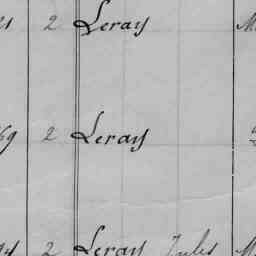 2 Leray
69 2 Leray
2 Leray Jules